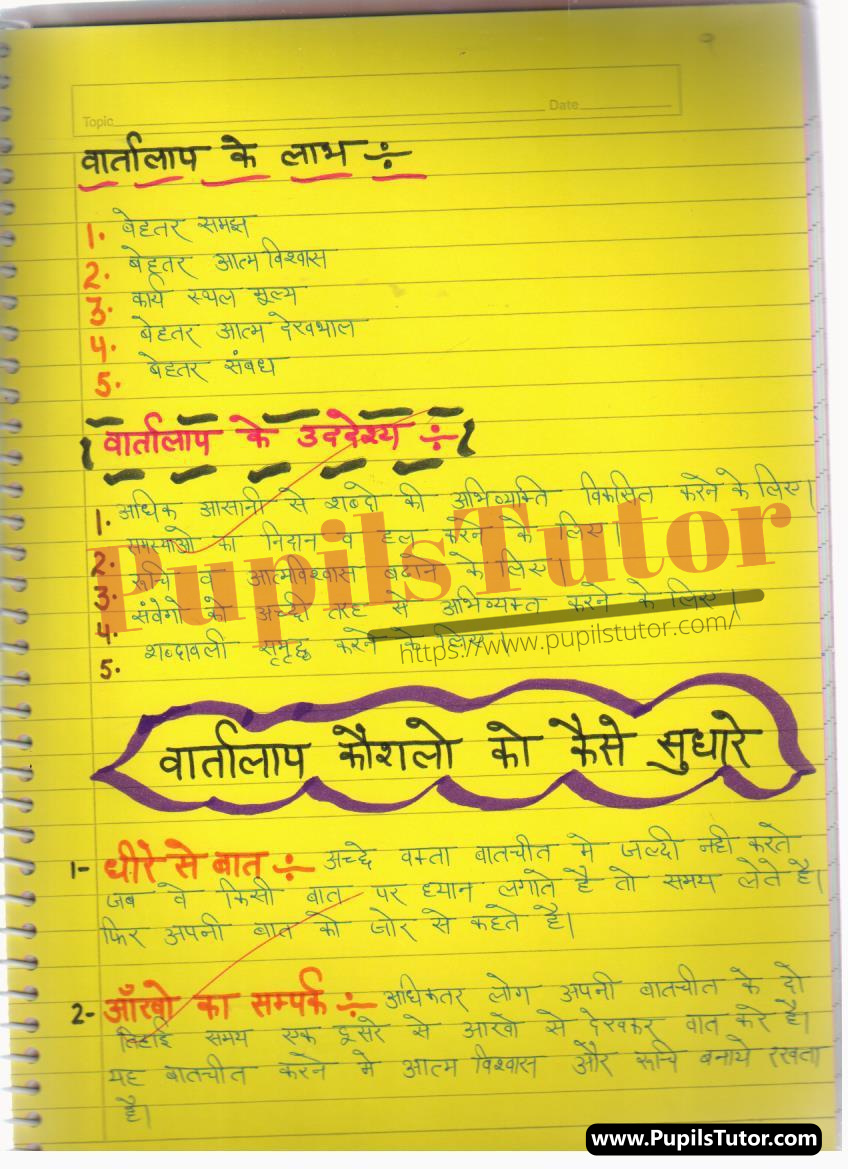 ९
Topic
Date
वार्तालाप के लाभ ÷
1. बेहतर समझ
2. बेहतर आत्म विश्वास
3. कार्य स्थल मूल्य
4. बेहतर आत्म देखभाल
5. बेहतर संबध
वार्तालाप के उददेश्य ÷
1. अधिक आसानी से शब्दो की अभिव्यक्ति विकसित करने के लिए।
2. समस्याओ का निदान व हल करने के लिए।
3. रूचि व आत्मविश्वास बढाने के लिए।
4. संवेगो को अच्छी तरह से अभिव्यक्त करने के लिए।
5. शब्दावली समृद्ध करने के लिए।
PupilsTutor
https://www.pupilstutor.com/
वार्तालाप कौशलो को कैसे सुधारे
1- धीरे से बात ÷ अच्छे वक्ता बातचीत मे जल्दी नही करते
जब वे किसी बात पर ध्यान लगाते है तो समय लेते है।
फिर अपनी बात को जोर से कहते है।
2- आँखो का सम्पर्क ÷ अधिकतर लोग अपनी बातचीत के दो
तिहाई समय एक दूसरे से आखो से देखकर बात करे है।
यह बातचीत करने मे आत्म विश्वास और रूचि बनाये रखता
है।
www.PupilsTutor.com